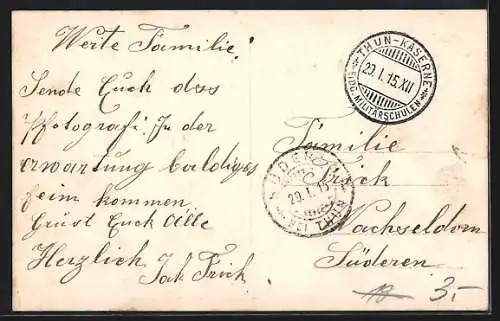 Werte Familie!
Sende Euch das
Pfotografi. In der
erwartung baldiges
heim kommen
Grüst Euch Alle
Herzlich
Jak Frick
THUN-KASERNE
29.I.15.XII
EIDG. MILITÄRSCHULEN
Familie
Frick
Wachseldorn
Süderen
SÜDEREN
29.I.15
BEI THUN
3.-